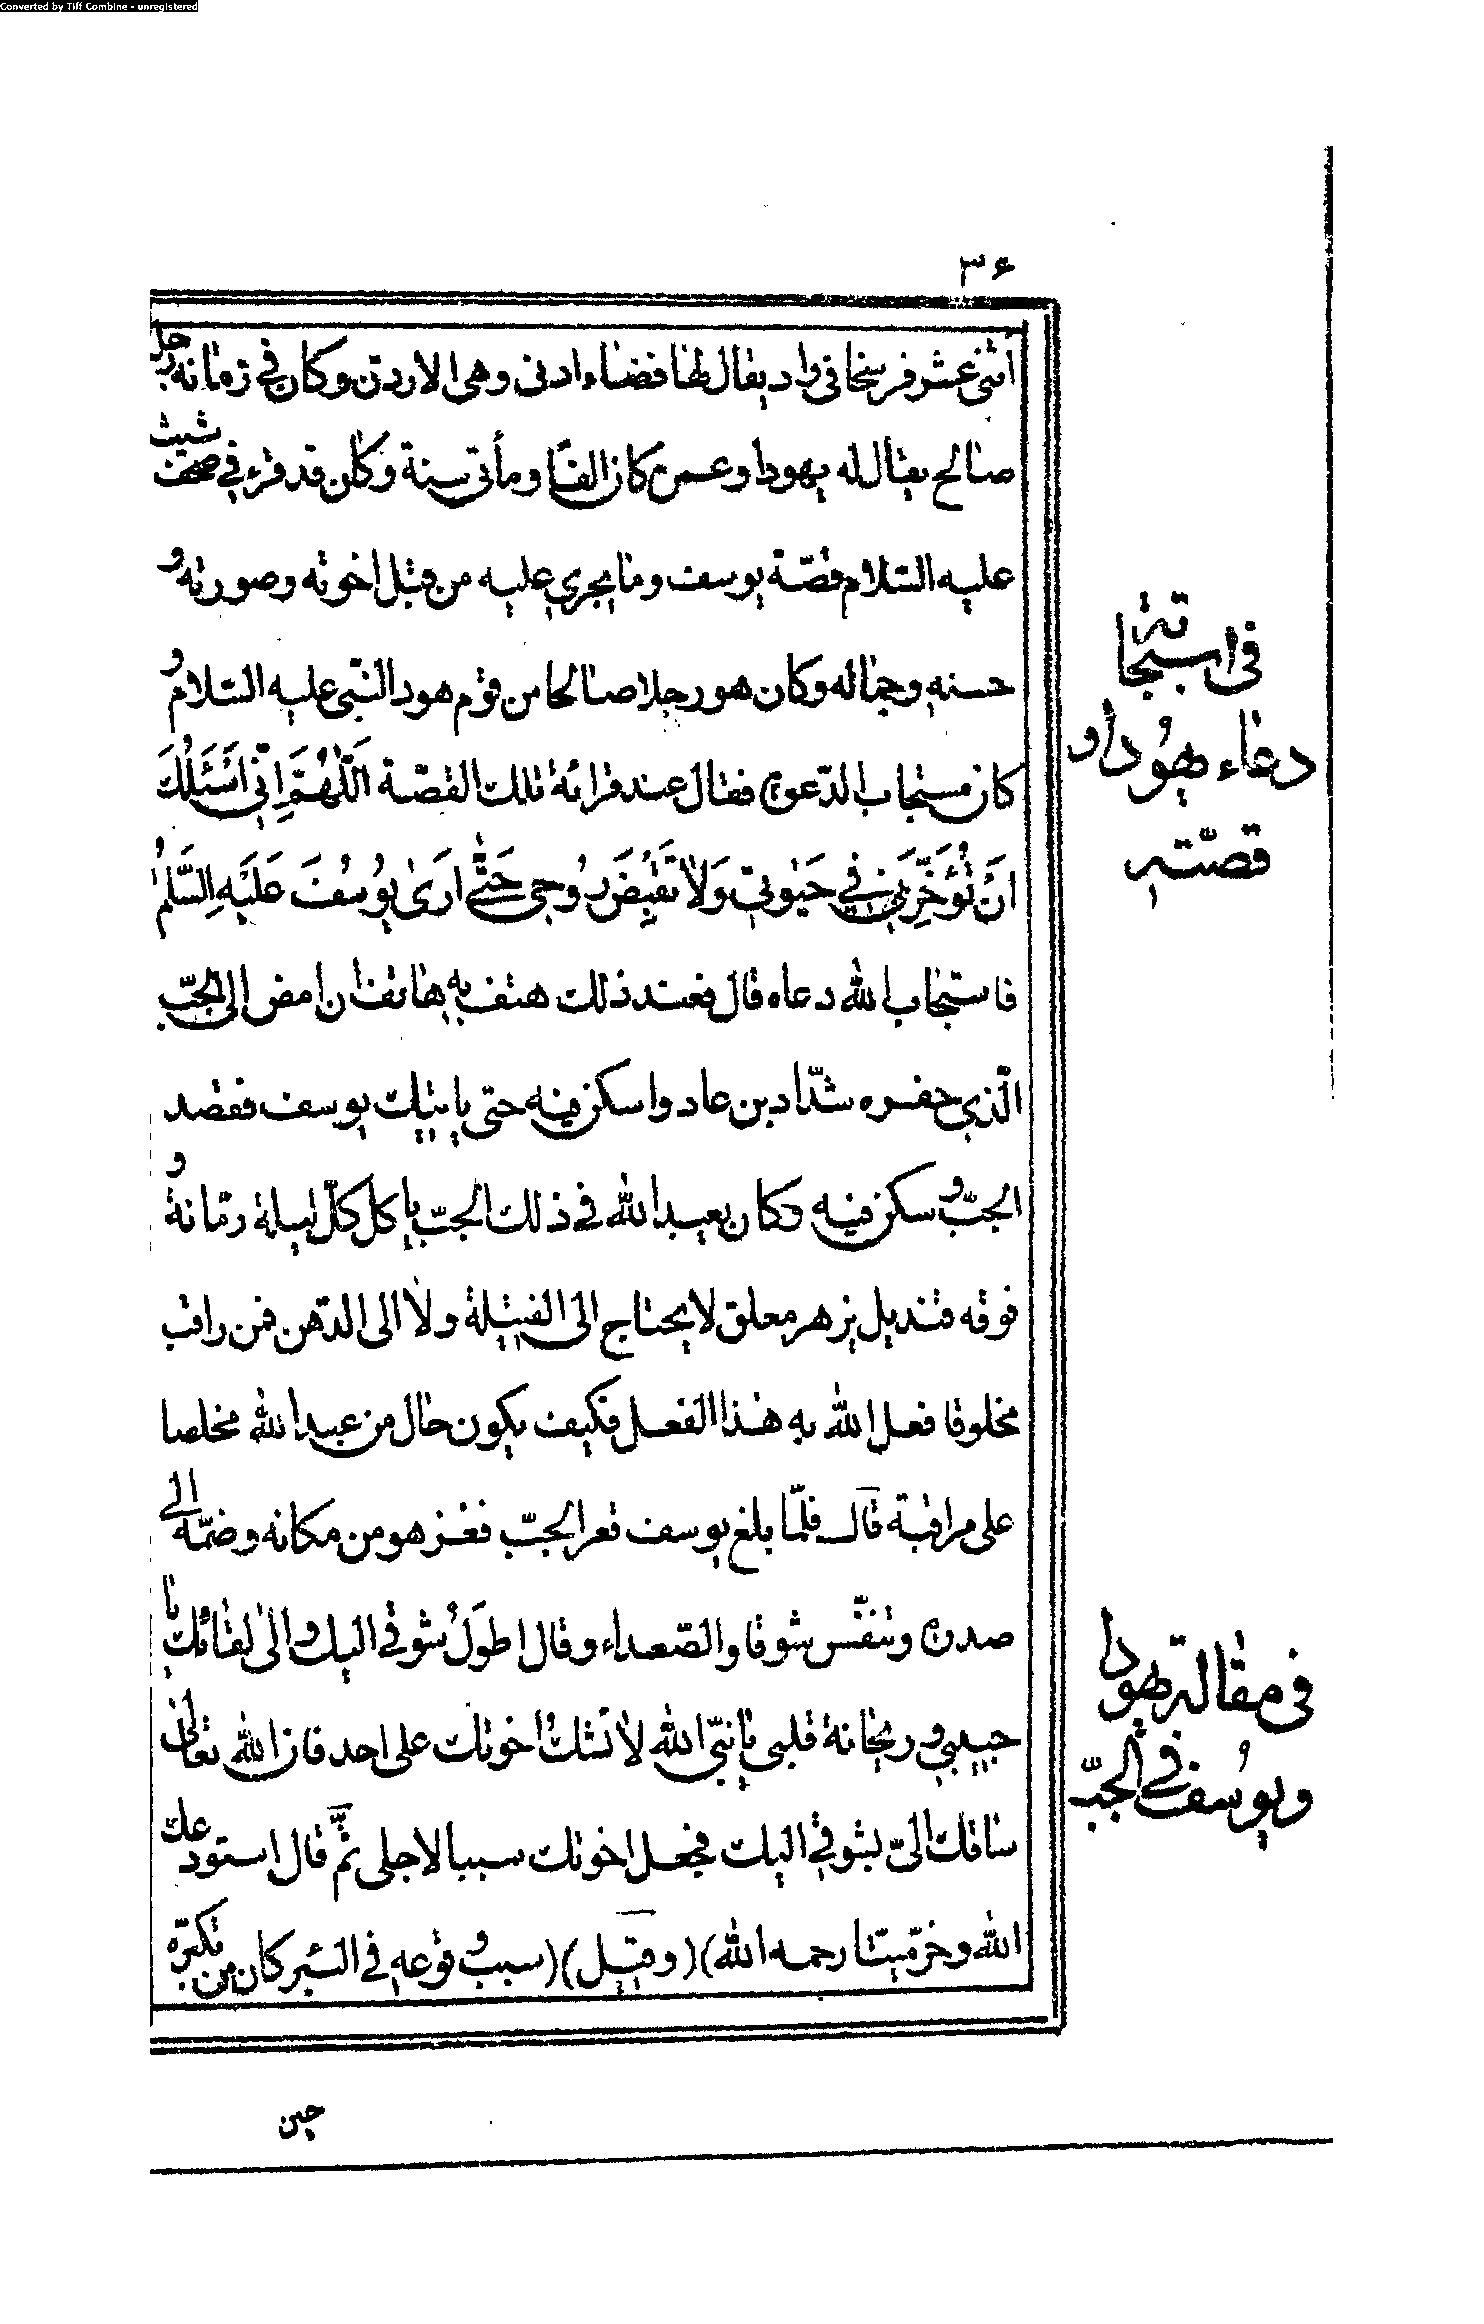 Converted by Tiff Combine - unregistered
٣۶
اثنى عشر فرسخا فى واد يقال لها فضاء ادنى وهى الاردن وكان فى زمانه رجل
صالح يقال له يهودا وعمره كان الفا ومأتى سنة وكان قد قرء فى صحف شيث
عليه السّلام قصّة يوسف وما يجرى عليه من قبل اخوته وصورته و
حسنه وجماله وكان هو رجلا صالحا من قوم هود النّبى عليه السّلام و
كان مستجاب الدّعوة فقال عند قرائة تلك القصّة اَللّٰهُمَّ اِنّى اَسْئَلُكَ
اَنْ تُؤَخِّرَنى فى حَيٰوتى وَلاٰ تَقْبِضَ رُوحى حَتّٰى اَرىٰ يُوسُفَ عَلَيْهِ السَّلٰمُ
فاستجاب الله دعاه قال فعند ذلك هتف به هاتف ان امض الى الجبّ
الّذى حفره شدّاد بن عاد واسكن فيه حتى يأتيك يوسف فقصد
الجبّ وسكن فيه وكان يعبد الله فى ذلك الجبّ يأكل كلّ ليلة رمّانة و
فوقه قنديل يزهر معلق لا يحتاج الى الفتيلة ولا الى الدّهن فمن راقب
مخلوقا فعل الله به هذا الفعل فكيف يكون حال من عبد الله مخلصا
على مراقبة قال فلمّا بلغ يوسف قعر الجبّ فقز هو من مكانه وضمّه الى
صدره وتنفّس شوقا والصّعداء وقال اطول شوقى اليك والى لقائك يا
حبيبى وريحانة قلبى يا نبىّ الله لا تشك اخوتك على احد فان الله تعالى
ساقك الىّ بشوقى اليك فجعل اخوتك سببا لاجلى ثمّ قال استودعك
الله وخرّ ميّتا رحمه الله) (وقيل) (سبب وقوعه فى البئر كان من تكبرّه
حين
فى استجابة
دعاء يهودا و
قصّته
فى مقالة يهودا
ويوسف فى الجبّ